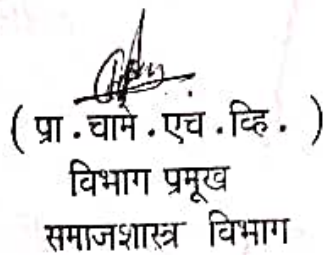 ( प्रा . चामे . एच . व्हि . )
विभाग प्रमूख
समाजशास्त्र विभाग